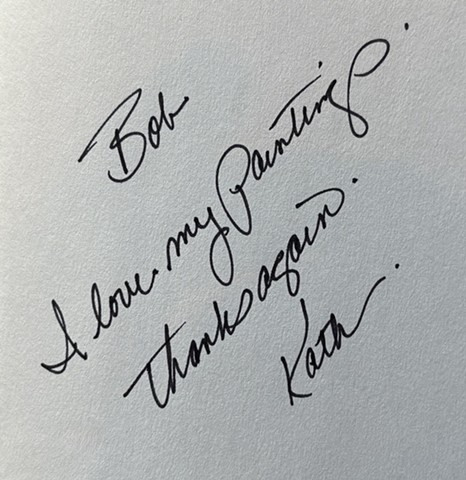 Bob
I love my Painting.
Thanks again.
Kath.